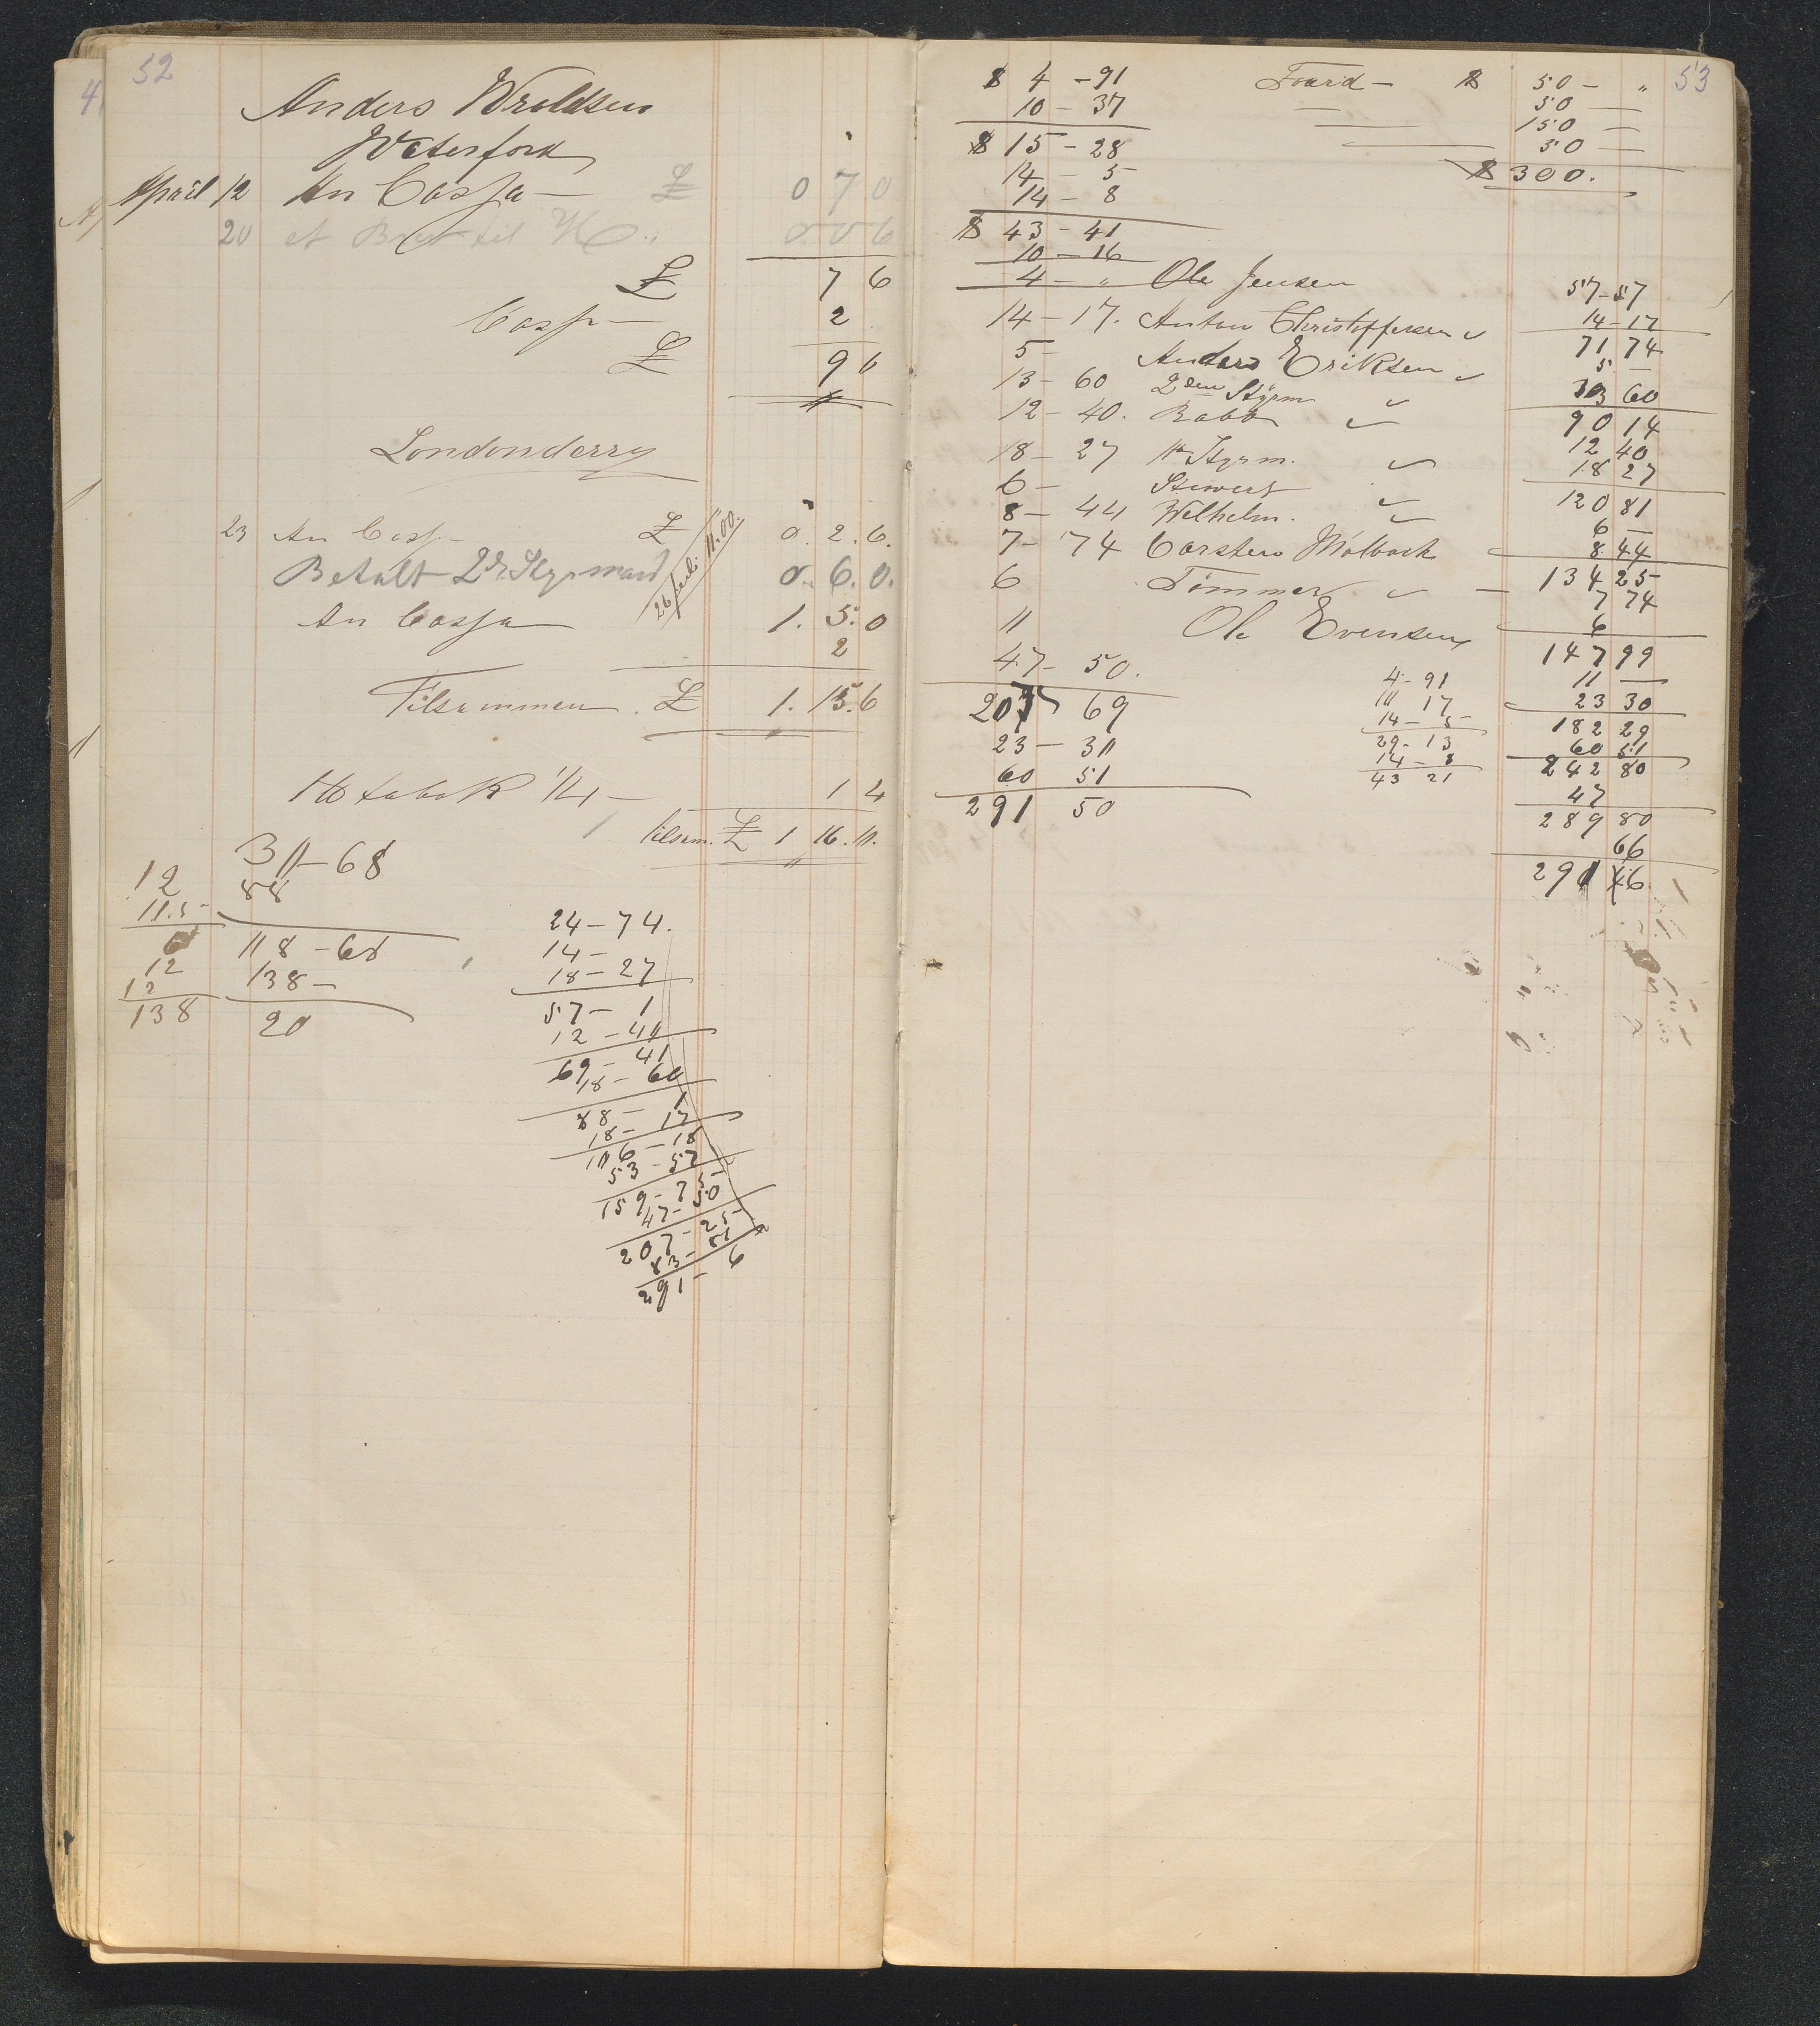 52
Anders Wroldsen
Waterford
April 12 An Cassa — £ 0 7 0
20 et Brev til 0.0 6
£ 7 6
Cassa — 2
£ 9 6
Londonderry
23 An Cassa — £ 0. 2. 6.
Betalt 2d. Styrmand 0. 6. 0.
26 Juli 11.00.
An Cassa 1. 5. 0
2
Tilsammen. £ 1. 15. 6
1 ℔ tabak 1/4 — 1 4
tilsam. £ 1 16. 10.
30-68
88
118-68
138-
20
12
11.5-
6
12
12
138
24-74.
14-
18-27
57- 1
12-40
69- 41
18- 60
88- 1
18- 17
106-18
53-57
159-75
47-50
207-25
83-81
291- 6
53
$ 4 - 91
10 - 37
$ 15 - 28
14 - 5
14 - 8
$ 43 - 41
10 - 16
4 - „ Ole Jensen
14 - 17. Anton Christoffersen ✓
5 - Anders Eriksen ✓
13 - 60 2den Styrm ✓
12 - 40. ✓
18 - 27 1ste Styrm. ✓
6 - Stewert ✓
8 - 44 Wilhelm. ✓
7 - 74 Carsten Molback
6 Tømmer ✓ —
11 Ole Evensen
47 - 50.
207 69
23 - 30
60 51
291 50
Foard — $ 50 — „
— 50 —
— 150 —
— 50 —
$ 300.
57-57
14-17
71 74
5 —
13 60
90 14
12 40
18 27
120 81
6 —
8. 44
134 25
7 74
6
147 99
11 —
23 30
182 29
60 51
242 80
47
289 80
66
290 46
4-91
10 17
14- 5
29-13
14- 8
43 21